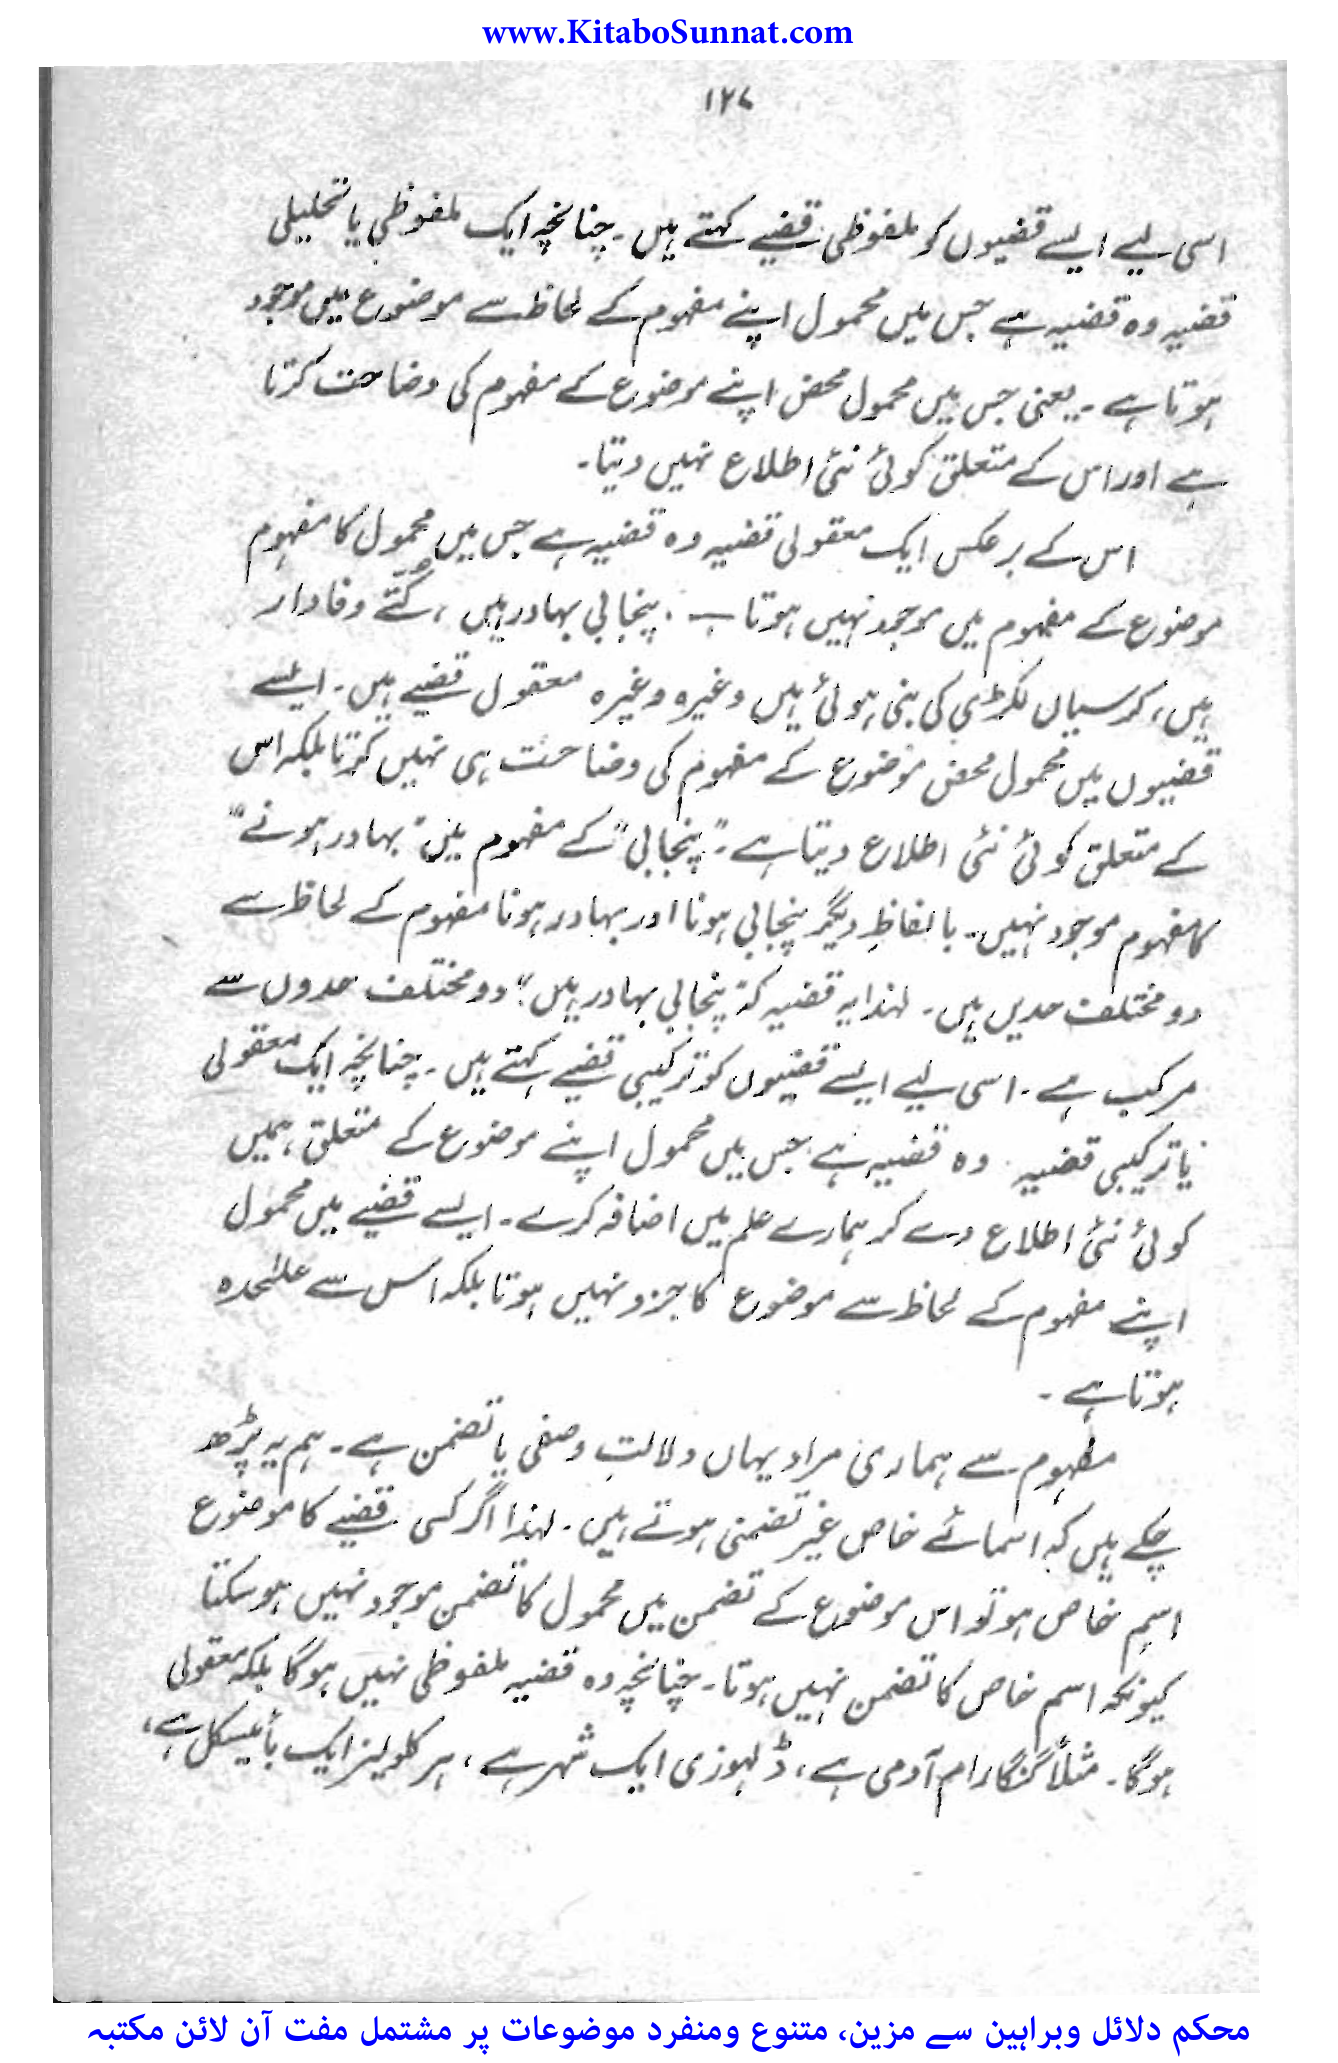 www.KitaboSunnat.com
۱۲۷
اسی لیے ایسے قضیوں کو ملفوظی قضیے کہتے ہیں۔ چنانچہ ایک ملفوظی یا تحلیلی
قضیہ وہ قضیہ ہے جس میں محمول اپنے مفہوم کے لحاظ سے موضوع میں موجود
ہوتا ہے۔ یعنی جس میں محمول محض اپنے موضوع کے مفہوم کی وضاحت کرتا
ہے اور اس کے متعلق کوئی نئی اطلاع نہیں دیتا۔
اس کے برعکس ایک معقولی قضیہ وہ قضیہ ہے جس میں محمول کا مفہوم
موضوع کے مفہوم میں موجود نہیں ہوتا۔ پنجابی بہادر ہیں، کُتّے وفادار
ہیں، کرسیاں لکڑی کی بنی ہوئی ہیں وغیرہ وغیرہ معقول قضیے ہیں۔ ایسے
قضیوں میں محمول محض موضوع کے مفہوم کی وضاحت ہی نہیں کرتا بلکہ اس
کے متعلق کوئی نئی اطلاع دیتا ہے۔ "پنجابی" کے مفہوم میں "بہادر ہونے"
کا مفہوم موجود نہیں۔ بالفاظِ دیگر پنجابی ہونا اور بہادر ہونا مفہوم کے لحاظ سے
دو مختلف حدیں ہیں۔ لہذا یہ قضیہ کہ "پنجابی بہادر ہیں" دو مختلف حدوں سے
مرکب ہے۔ اسی لیے ایسے قضیوں کو ترکیبی قضیے کہتے ہیں۔ چنانچہ ایک معقولی
یا ترکیبی قضیہ وہ قضیہ ہے جس میں محمول اپنے موضوع کے متعلق ہمیں
کوئی نئی اطلاع دے کر ہمارے علم میں اضافہ کرے۔ ایسے قضیے میں محمول
اپنے مفہوم کے لحاظ سے موضوع کا جزو نہیں ہوتا بلکہ اس سے علٰحدہ
ہوتا ہے۔
مفہوم سے ہماری مراد یہاں دلالتِ وصفی یا تضمن ہے۔ ہم یہ پڑھ
چکے ہیں کہ اسمائے خاص غیر تضمنی ہوتے ہیں۔ لہذا اگر کسی قضیے کا موضوع
اسمِ خاص ہو تو اس موضوع کے تضمن میں محمول کا تضمن موجود نہیں ہو سکتا
کیونکہ اسم خاص کا تضمن نہیں ہوتا۔ چنانچہ وہ قضیہ ملفوظی نہیں ہوگا بلکہ معقولی
ہوگا۔ مثلاً گنگا رام آدمی ہے، ڈلہوزی ایک شہر ہے، ہرکولیز ایک بائیسکل ہے،
محکم دلائل وبراہین سے مزین، متنوع ومنفرد موضوعات پر مشتمل مفت آن لائن مکتبہ